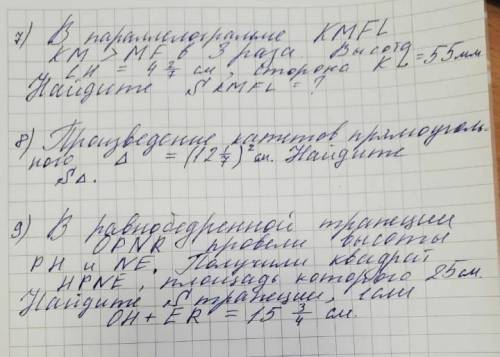 7) В параллелограмме KMFL
KM > MF в 3 раза Высота
LH = 4 3/7 см, сторона KL = 55 мм
Найдите S KMFL = ?
8) Произведение катетов прямоуголь-
ного Δ = (12 1/7)² см. Найдите
SΔ.
9) В равнобедренной трапеции
OPNR провели высоты
PH и NE. Получили квадрат
HPNE, площадь которого 25 см.
Найдите S трапеции, если
OH + ER = 15 3/4 см.